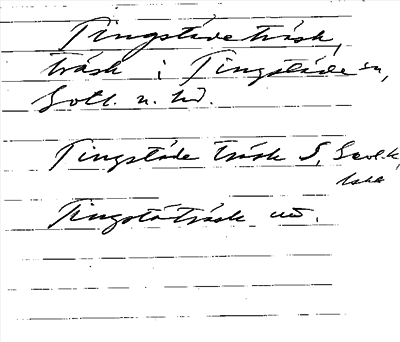 Tingstäde träsk,
träsk i Tingstäde sn,
Gotl. n. hd.
Tingstäde träsk S,
Tingstäträsk